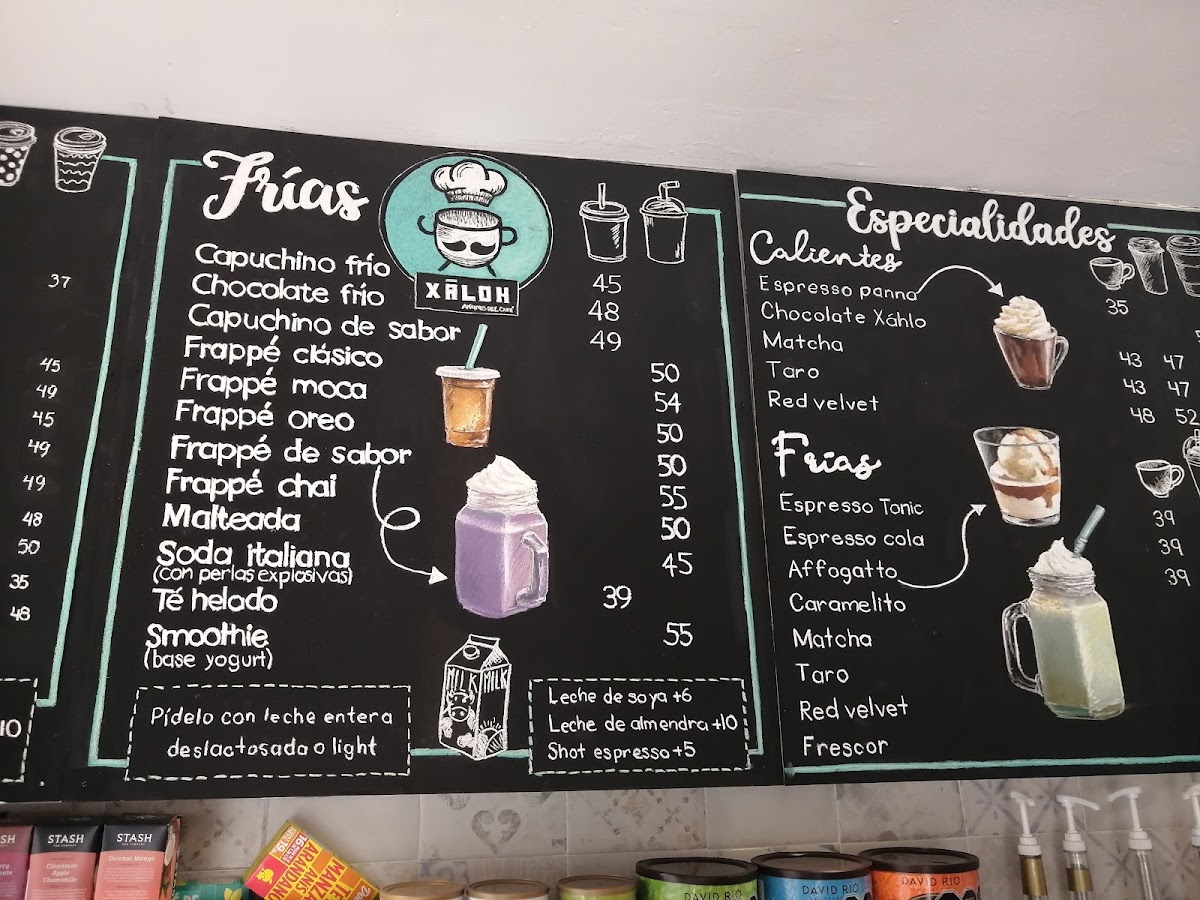 37
45
49
45
49
49
48
50
35
48
10
Frías
XÃLOH
Capuchino frío 45
Chocolate frío 48
Capuchino de sabor 49
Frappé clásico 50
Frappé moca 54
Frappé oreo 50
Frappé de sabor 50
Frappé chai 55
Malteada 50
Soda italiana 45
(con perlas explosivas)
Té helado 39
Smoothie 55
(base yogurt)
Pídelo con leche entera
deslactosada o light
MILK MILK
Leche de soya +6
Leche de almendra +10
Shot espresso +5
Especialidades
Calientes
Espresso panna 35
Chocolate Xáhlo
Matcha 43 47
Taro 43 47
Red velvet 48 52
Frías
Espresso Tonic 39
Espresso cola 39
Affogatto 39
Caramelito
Matcha
Taro
Red velvet
Frescor
STASH
STASH
Cinnamon
Apple
Chamomile
STASH
Coconut Mango
DAVID RIO
DAVID RIO
DAVID RIO